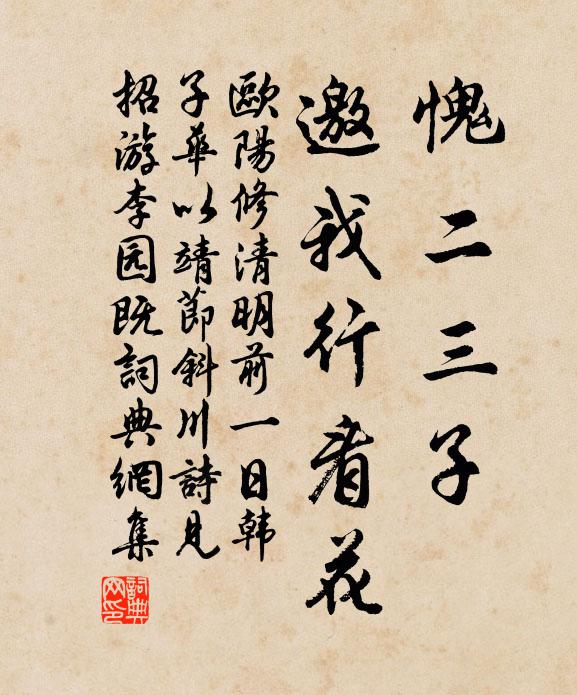 愧二三子
邀我行看花
歐陽修清明前一日韩
子華以靖節斜川詩見
招游李园既詞典網集
詞典网印